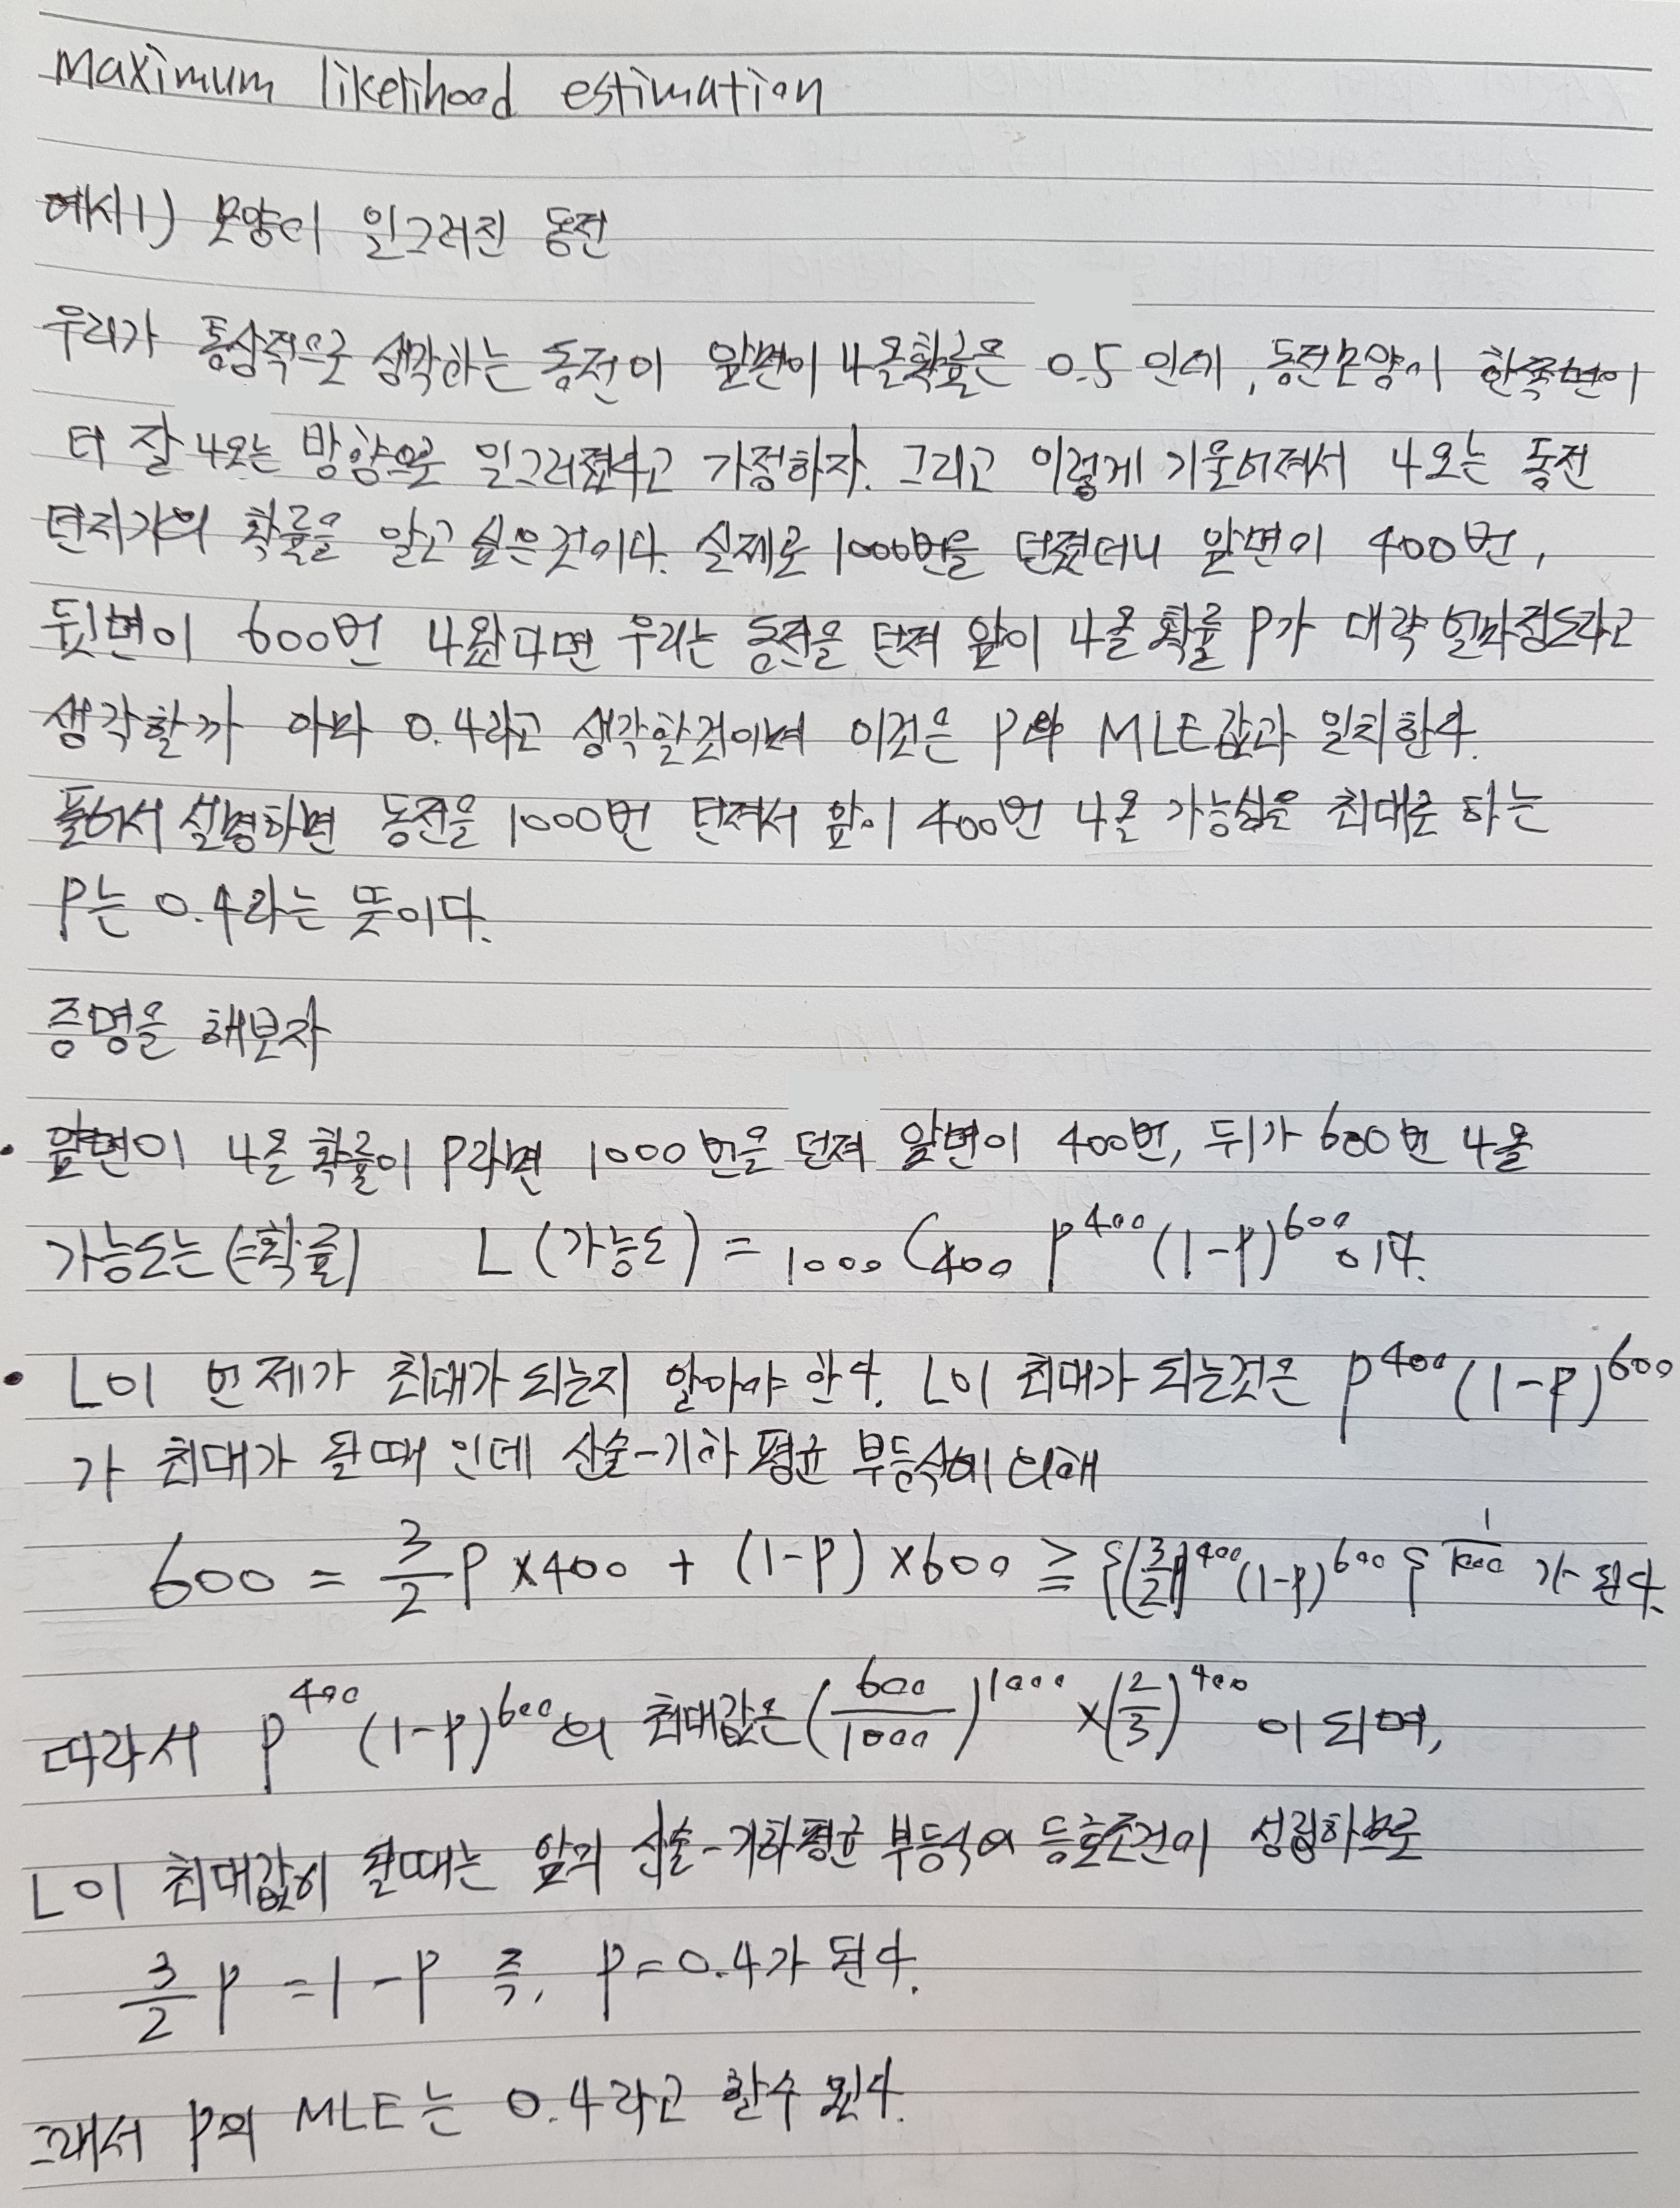 maximum likelihood estimation
예시1) 모양이 일그러진 동전
우리가 통상적으로 생각하는 동전이 앞면이 나올확률은 0.5 인데, 동전모양이 한쪽면이
더 잘 나오는 방향으로 일그러졌다고 가정하자. 그리고 이렇게 기울어져서 나오는 동전
던지기의 확률을 알고 싶은것이다. 실제로 1000번을 던졌더니 앞면이 400번,
뒷면이 600번 나왔다면 우리는 동전을 던져 앞이 나올 확률 P가 대략 얼마정도라고
생각할까 아마 0.4라고 생각할것이며 이것은 P의 MLE값과 일치한다.
풀어서 설명하면 동전을 1000번 던져서 앞이 400번 나올 가능성을 최대로 하는
P는 0.4라는 뜻이다.
증명을 해보자
• 앞면이 나올 확률이 P라면 1000번을 던져 앞면이 400번, 뒤가 600번 나올
가능도는 (=확률) L (가능도) = ₁₀₀₀C₄₀₀ P⁴⁰⁰ (1-P)⁶⁰⁰이다.
• L이 언제가 최대가 되는지 알아야 한다. L이 최대가 되는것은 P⁴⁰⁰ (1-P)⁶⁰⁰
가 최대가 될때 인데 산술-기하 평균 부등식에 의해
600 = 3/2 P ×400 + (1-P) ×600 ≥ {(3/2 P)⁴⁰⁰ (1-P)⁶⁰⁰}^(1/1000) 가 된다.
따라서 P⁴⁰⁰ (1-P)⁶⁰⁰의 최대값은 (600/1000)¹⁰⁰⁰ × (2/3)⁴⁰⁰ 이 되며,
L이 최대값이 될때는 앞의 산술-기하평균 부등식의 등호조건이 성립하므로
3/2 P = 1 - P 즉, P = 0.4가 된다.
그래서 P의 MLE는 0.4라고 할수 있다.